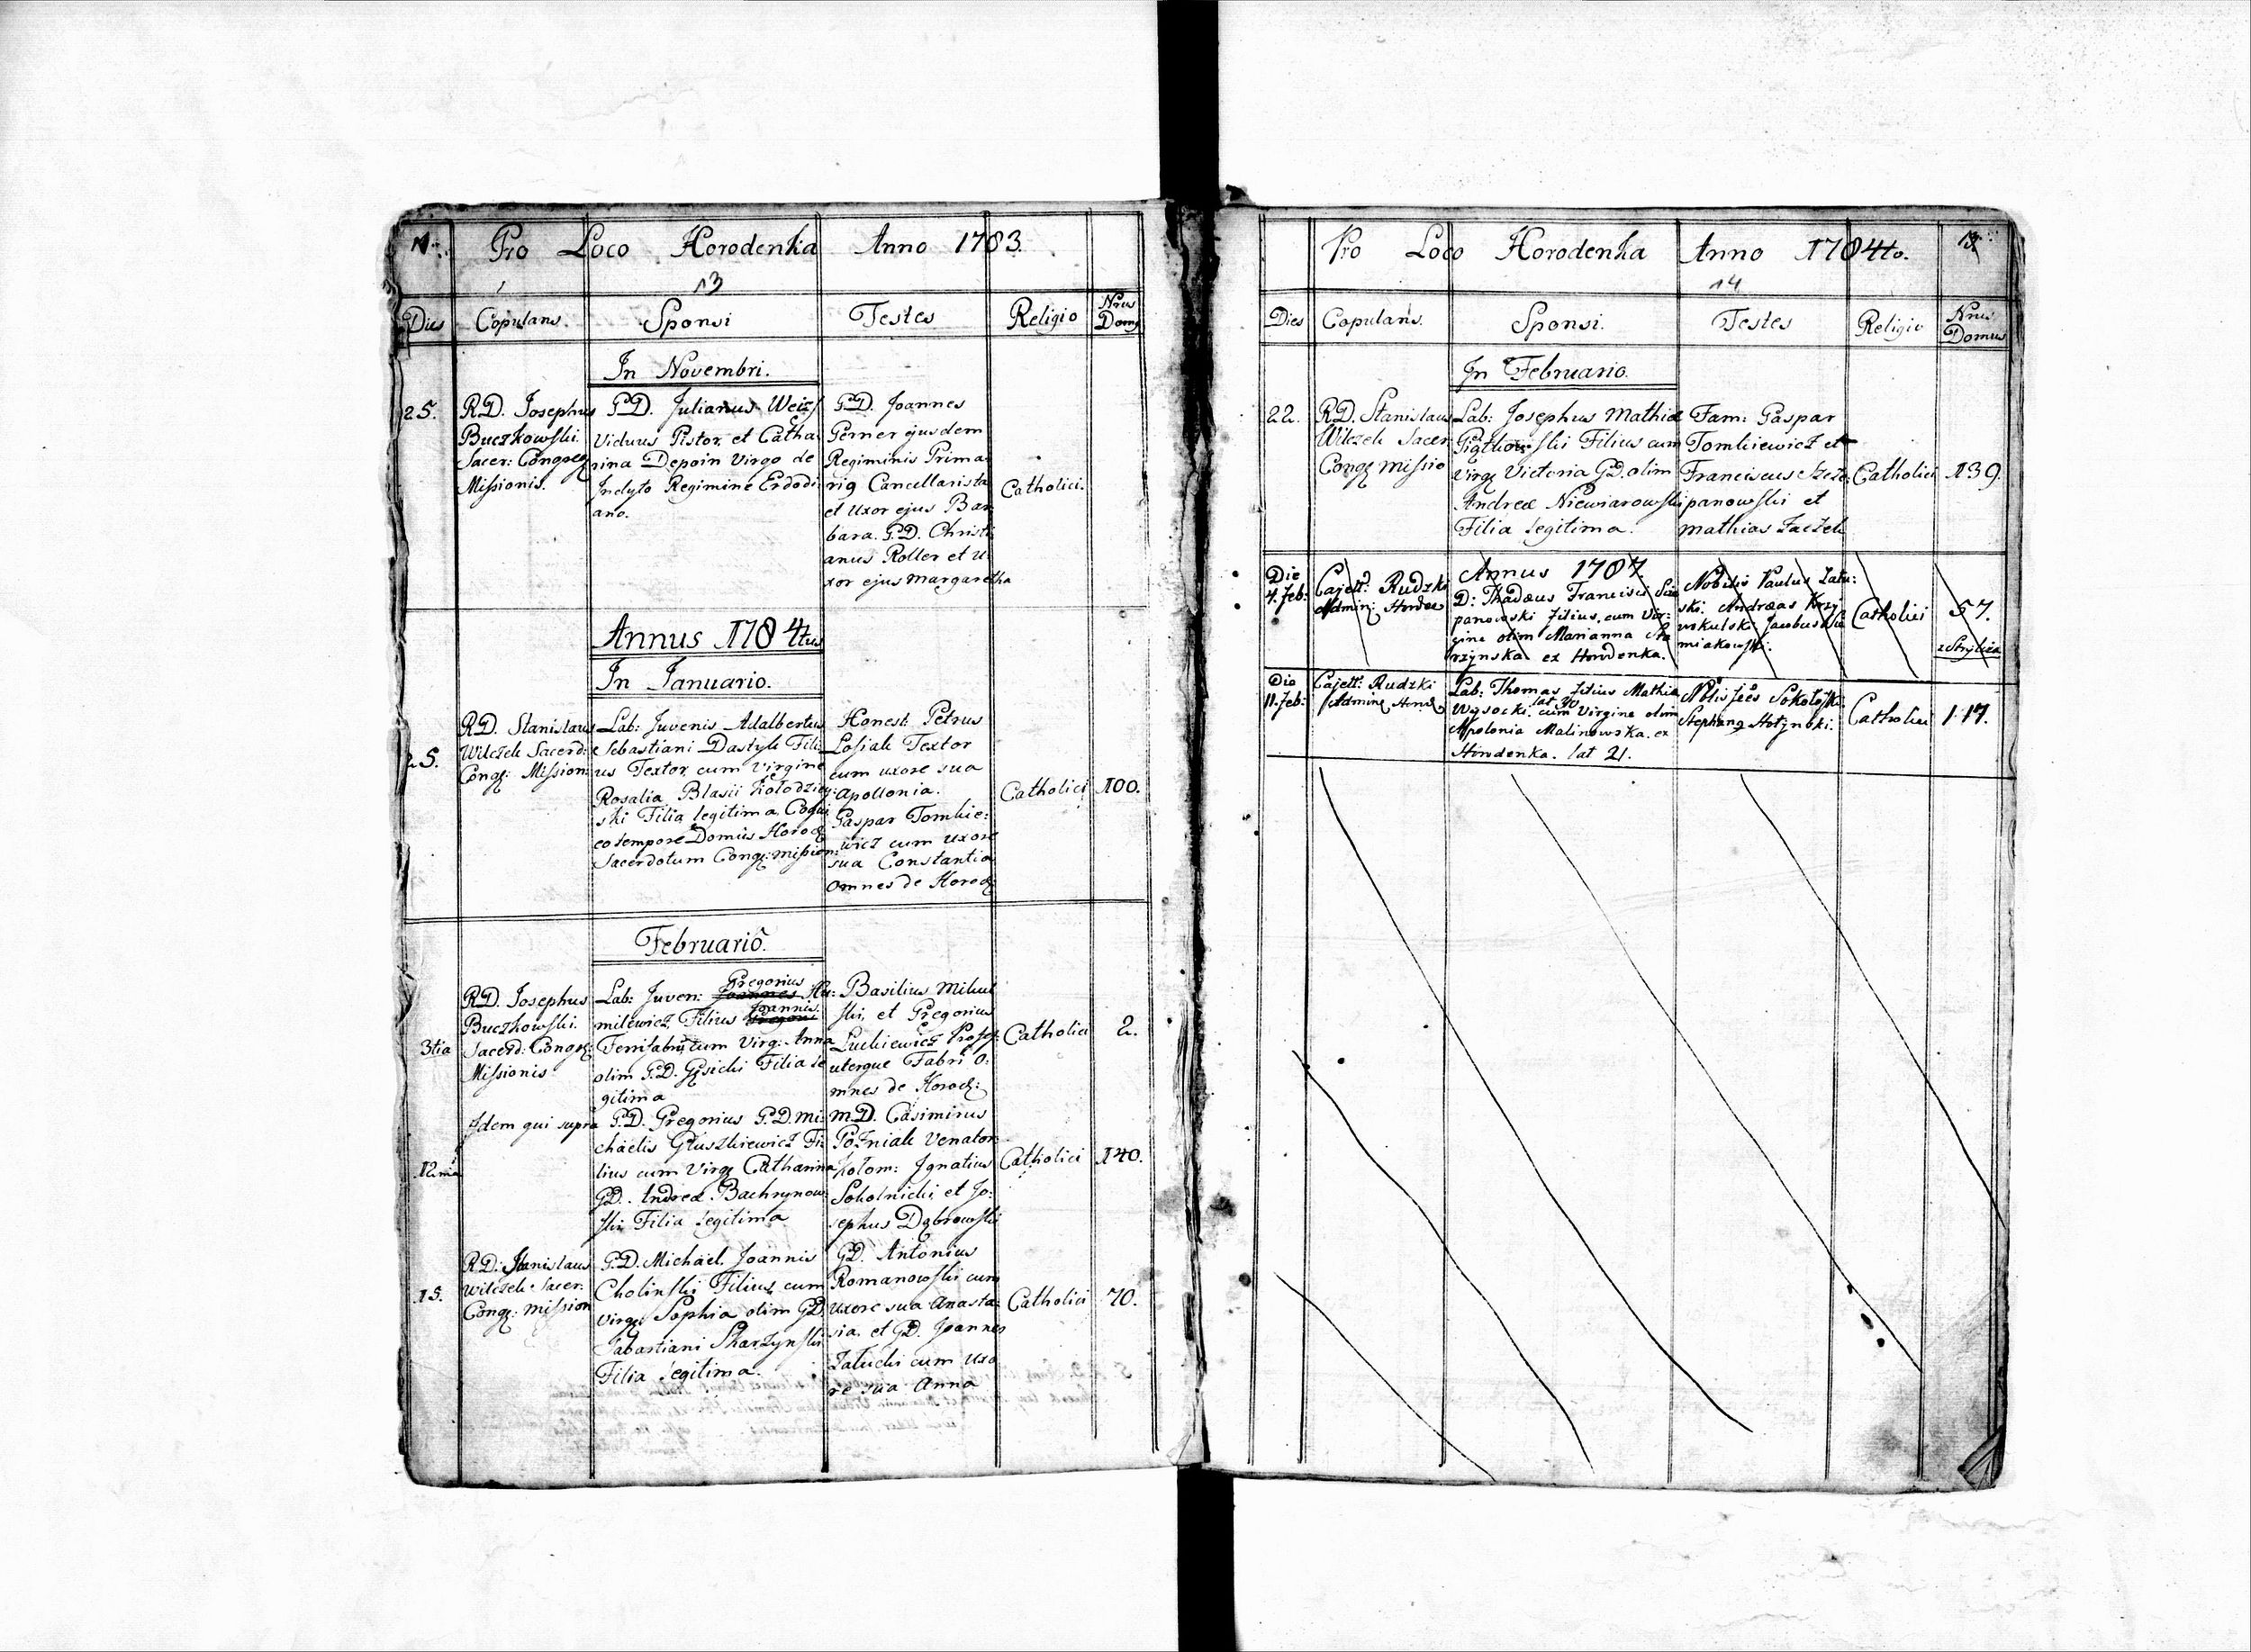 Pro Loco Horodenka Anno 1783.
13
Dies Copulans. Sponsi Testes Religio Nrus Domus
In Novembri.
25.
R.D. Josephus
Buczkowski.
Sacer: Congreg
Missionis.
G.D. Julianus Weiss
Viduus Pistor et Catha
rina Depoin Virgo de
Indyto Regimine Erdodi
ano.
G.D. Joannes
Gerner ejusdem
Regiminis Prima
rig Cancellarista
et Uxor ejus Bar
bara. G.D. Christi
anus Roller et U
xor ejus Margaretha
Catholici.
Annus 1784tus
In Januario.
25.
R.D. Stanislaus
Wilczek Sacerd:
Cong: Mission:
Lab: Juvenis Adalbertus
Sebastiani Dastyk Fili
us Textor cum Virgine
Rosalia Blasii Kołodziey
ski Filia legitima
eo tempore Domus Horod
Sacerdotum Cong: mission:
Honest: Petrus
Losiak Textor
cum uxore sua
Apollonia.
Gaspar Tomkie:
wicz cum uxore
sua Constantia
omnes de Horod:
Catholici
100.
Februario.
3tia
R.D. Josephus
Buczkowski.
Sacerd: Cong:
Missionis
Lab: Juven: Joannes Gregorius Hu:
milewicz Filius Gregorii Joannis.
Ferrifabri cum Virg: Anna
olim G.D. Gąsicki Filia le
gitima
Basilius Mikul
ski, et Gregorius
Luckiewicz
uterque Fabri o:
mnes de Horod:
Catholici
2.
12ma
Idem qui supra
G.D. Gregorius G.D. Mi:
chaelis Gluszkiewicz Fi:
lius cum Virg: Catharina
G.D. Andreæ Bachrynow:
ski Filia legitima
M.D. Casimirus
Poźniak Venator
polom: Ignatius
Sokolnicki et Jo:
sephus Dąbrowski
Catholici
140.
15.
R.D. Stanislaus
Wilczek Sacer:
Cong: mission
G.D. Michael Joannis
Cholinski Filius cum
Virg: Sophia olim G.D.
Sabastiani Skarzynski
Filia Legitima.
G.D. Antonius
Romanowski cum
Uxore sua Anasta:
sia. et G.D. Joannes
Załucki cum Uxo
re sua Anna
Catholici
70.
Pro Loco Horodenka Anno 1784to.
14
Dies Copulans. Sponsi. Testes Religio Nrus Domus
In Februario.
22.
R.D. Stanislaus
Wilczek Sacer
Cong missio
Lab: Josephus Mathiæ
Filius cum
Virg: Victoria G.D. olim
Andreæ Niewiarowski
Filia legitima.
Fam: Gaspar
Tomkiewicz et
Franciscus Szcze
panowski et
Mathias Zaczek
Catholici
139.
Annus 1787.
Die
4. Feb:
Cajet: Rudzki
Admin: Horden
D: Thadæus Francisci Szcze
panowski Filius, cum Vir:
gine olim Marianna Ska
rzynska ex Hordenka.
Nobilis Paulus Zału:
ski. Andræas Krzy
wokulski Jacobus Sie
miakowski.
Catholici
57.
Die
11. Feb:
Cajet: Rudzki
Admin: Hord
Lab: Thomas Filius Mathiæ
Wysocki. lat 30 cum Virgine olim
Appolonia Malinowska. ex
Hordenka. lat 21.
Nblis Jces Sokołoski
Stephang Hotynski.
Catholici
117.